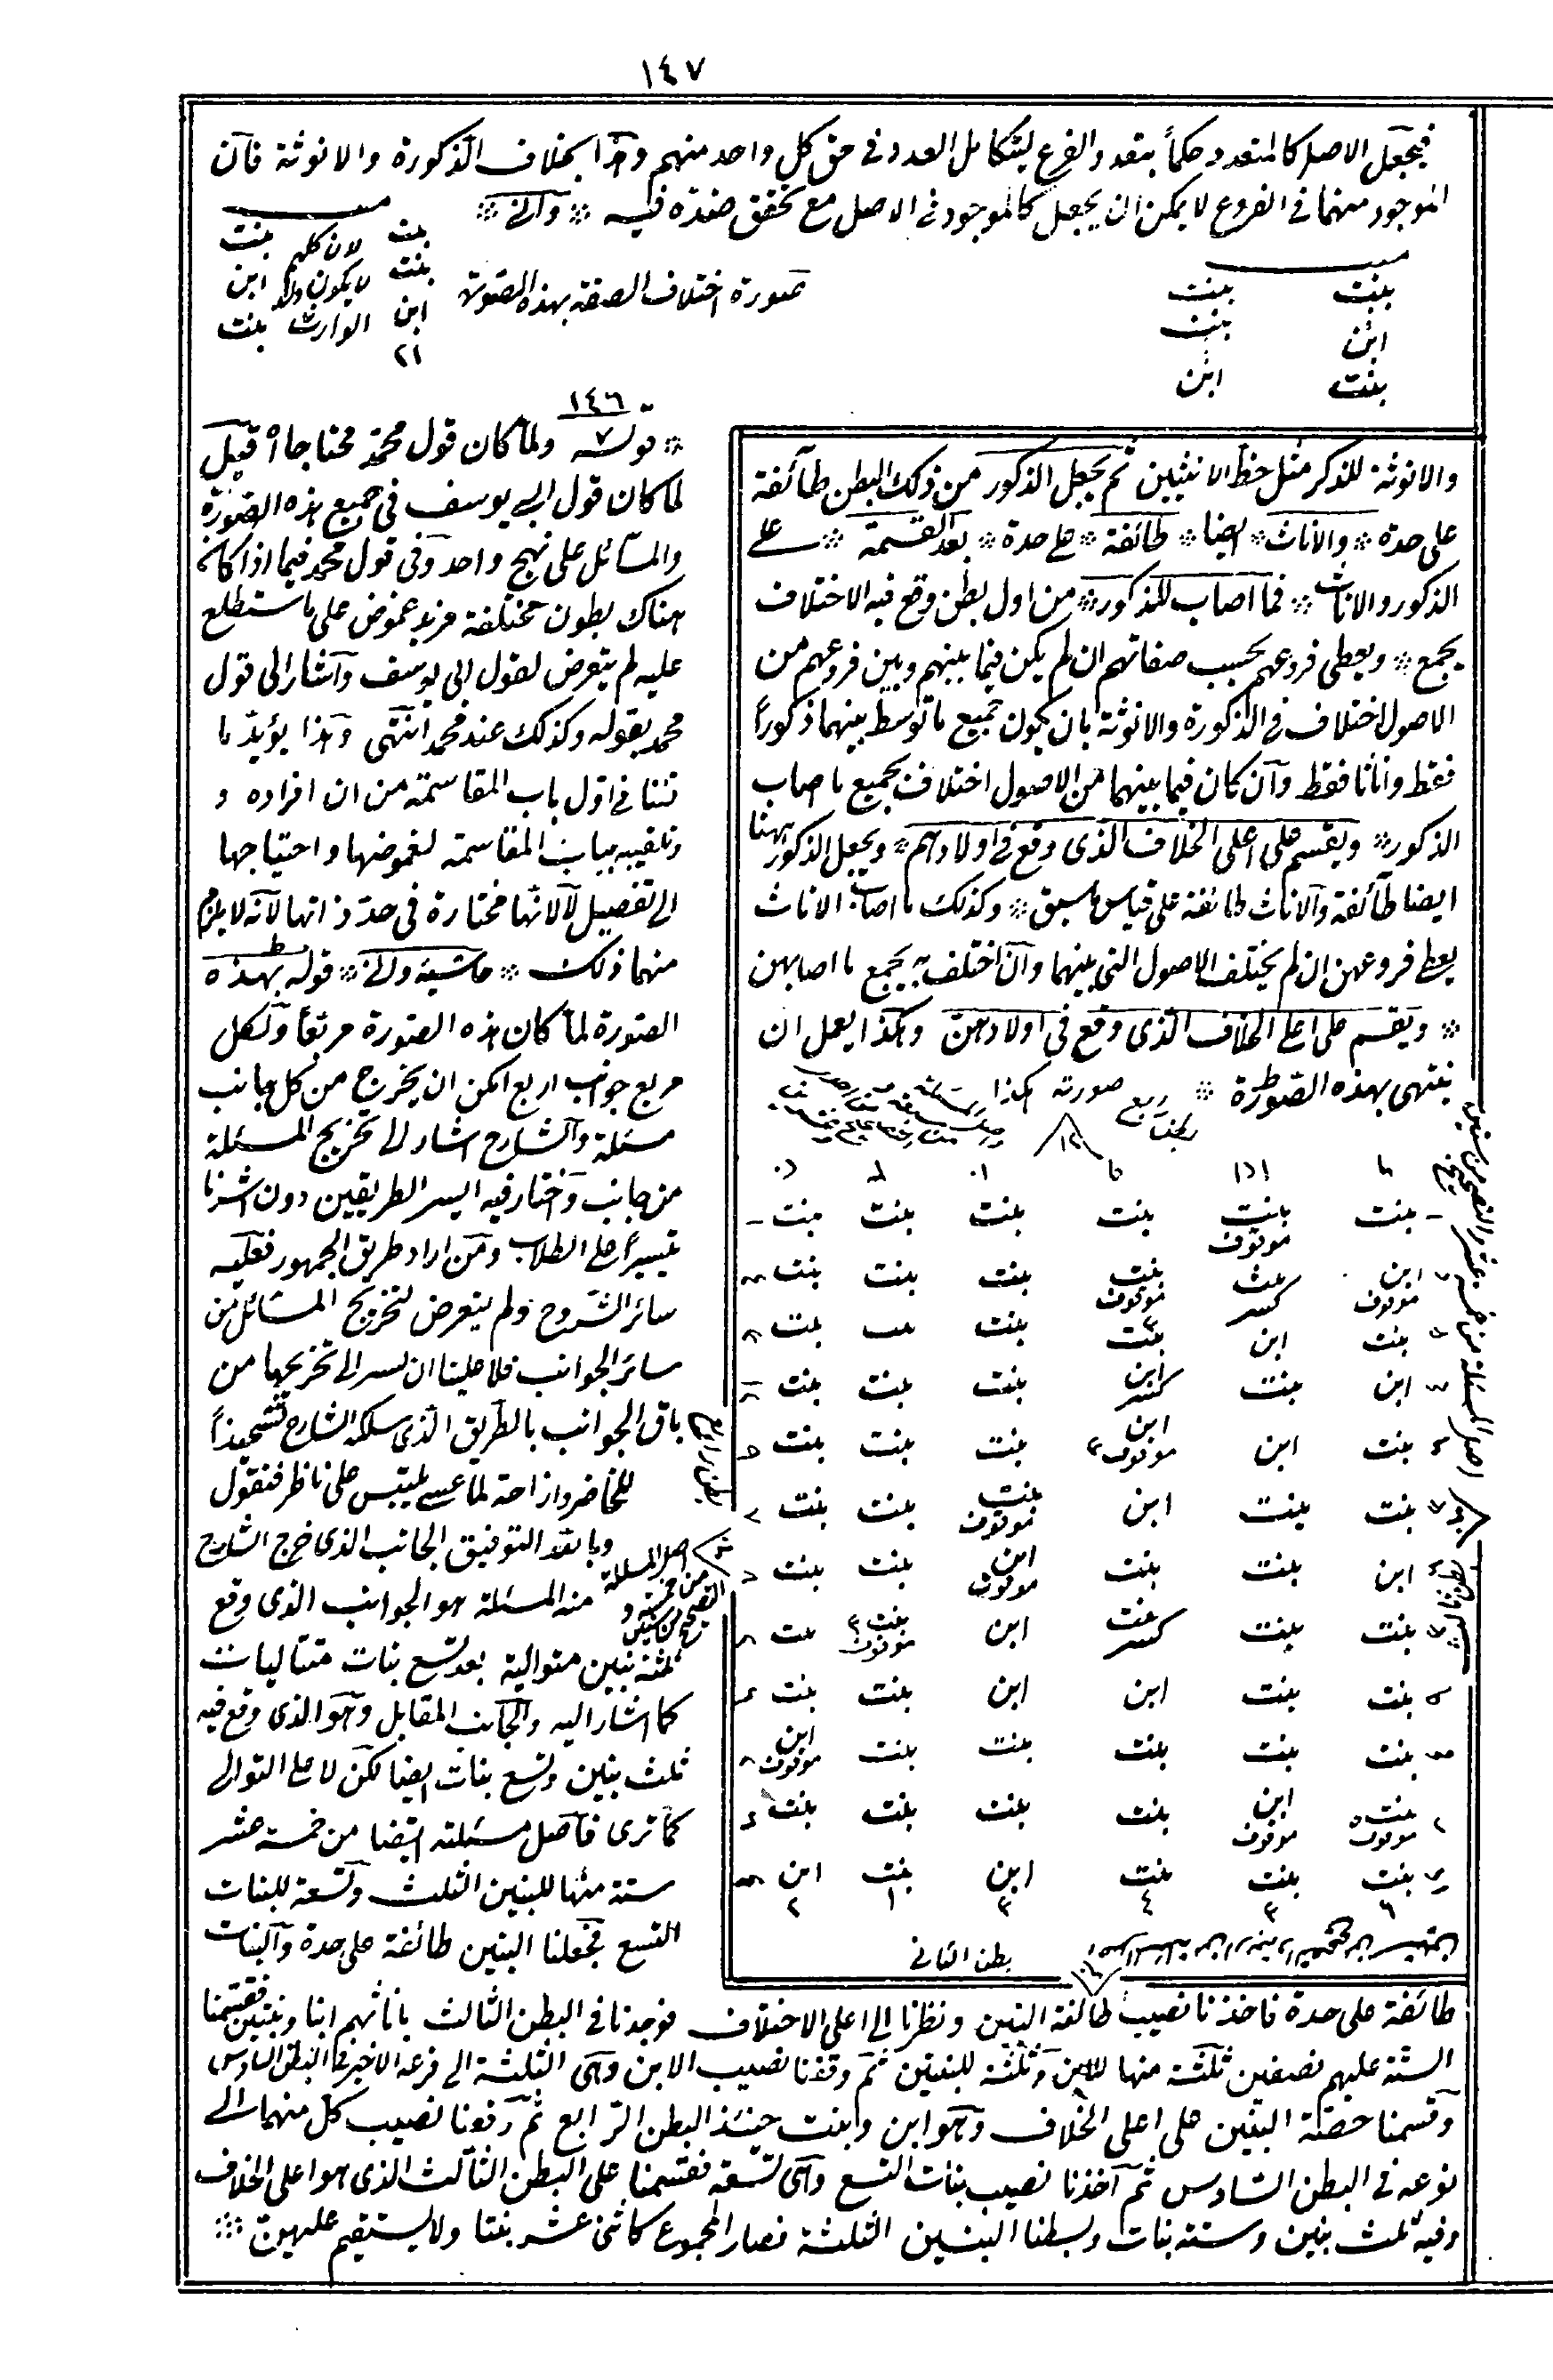 ١٤٧
فيجعل الاصل كالمتعدد حكماً بتعدد الفرع ليتكامل العدد فى حق كل واحد منهم وهذا بخلاف الذكورة والانوثة فان
الموجود منهما فى الفروع لا يمكن ان يجعل كالموجود فى الاصل مع تحقق ضده فيه * والى *
بنت بنت
ابن بنت
بنت ابن
صورة اختلاف الصفة بهذه الصورة
بنت لان كلهم بنت
بنت لا يكون ولد ابن
ابن الوارث بنت
٢١
والانوثة للذكر مثل حظ الانثيين ثم يجعل الذكور من ذلك البطن طائفة
على حدة * والاناث * ايضا * طائفة * على حدة * بعد القسمة * على
الذكور والاناث * فما اصاب للذكور * من اول بطن وقع فيه الاختلاف
يجمع * ويعطى فروعهم بحسب صفاتهم ان لم يكن فيما بينهم وبين فروعهم من
الاصول اختلاف فى الذكورة والانوثة بان يكون جميع ما توسط بينهما ذكوراً
فقط واناثا فقط وان كان فيما بينهما من الاصول اختلاف يجمع ما اصاب
الذكور * ويقسم على اعلى الخلاف الذى وقع فى اولادهم * ويجعل الذكور ههنا
ايضا طائفة والاناث طائفة على قياس ما سبق * وكذلك ما اصاب الاناث
يعطى فروعهن ان لم يختلف الاصول التى بينهما وان اختلف به يجمع ما اصابهن
* ويقسم على اعلى الخلاف الذى وقع فى اولادهن وهكذا يعمل ان
ينتهى بهذه الصورة * صورته هكذا
بنت بنت بنت بنت بنت بنت
موقوف
ابن بنت بنت بنت بنت بنت
موقوف كسر موقوف
بنت ابن بنت بنت بنت
ابن بنت ابن بنت بنت بنت
كسر
بنت ابن ابن بنت بنت بنت
موقوف
بنت بنت ابن بنت بنت بنت
موقوف
ابن بنت بنت ابن بنت بنت
موقوف
بنت بنت بنت ابن بنت بنت
كسر موقوف
بنت بنت ابن ابن بنت بنت
بنت بنت بنت بنت بنت ابن
موقوف
بنت ابن بنت بنت بنت بنت
موقوف موقوف
بنت بنت بنت ابن بنت ابن
٦ ٣ ٤ ٣ ١ ٢
بطن الثانى
١٤٦
* قوله ولما كان قول محمد محتاجا اه قيل
لما كان قول ابى يوسف فى جميع هذه الصورة
والمسائل على نهج واحد وفى قول محمد فيما اذا كان
هناك بطون مختلفة مزيد غموض على ما ستطلع
عليه لم يتعرض لقول ابى يوسف واشار الى قول
محمد بقوله وكذلك عند محمد انتهى وهذا يؤيد ما
قلنا فى اول باب المقاسمة من ان افراده و
تلقيبه بباب المقاسمة لغموضها واحتياجها
الى تفصيل لا لانها مختارة فى حد ذاتها لانه لا يلزم
منهما ذلك * حاشية والى * قوله بهذه
الصورة لما كان هذه الصورة مربعاً ولكل
مربع جوانب اربع امكن ان يخرج من كل جانب
مسئلة والشارح اشار الى تخريج المسئلة
من جانب واختار فيه ايسر الطريقين دون اشرنا
تيسيراً على الطلاب ومن اراد طريق الجمهور فعليه
سائر الشروح ولم يتعرض لتخريج المسائل من
سائر الجوانب فلا علينا ان نسير الى تخريجها من
باق الجوانب بالطريق الذى سلكه الشارح تشحيذاً
للخاضر وازاحة لما عسى يلتبس على ناظر فنقول
وبالله التوفيق الجانب الذى خرج الشارح
منه المسئلة هو الجوانب الذى وقع
ثلثة بنين متوالية بعد تسع بنات متتاليات
كما اشار اليه والجانب المقابل وهو الذى وقع فيه
ثلث بنين وتسع بنات ايضا لكن لا على التوالى
كما ترى فاصل مسئلته ايضا من خمسة عشر
ستة منها للبنين الثلث وتسعة للبنات
التسع فجعلنا البنين طائفة على حدة والبنات
طائفة على حدة فاخذنا نصيب طائفة البنين ونظرنا الى اعلى الاختلاف فوجدنا فى البطن الثالث باناثهم ابنا وبنتين فقسمنا
الستة عليهم نصفين ثلثة منها للابن وثلثة للبنتين ثم وقفنا نصيب الابن وهى الثلثة الى فرعه الاخير فى البطن السادس
وقسمنا حصة البنتين على اعلى الخلاف وهو ابن وبنت حينئذ البطن الرابع ثم رفعنا نصيب كل منهما الى
نوعه فى البطن السادس ثم اخذنا نصيب بنات التسع وهى تسعة فقسمنا على البطن الثالث الذى هو اعلى الخلاف
وفيه ثلث بنين وستة بنات وبسطنا البنين الثلثة فصار المجموع كاثنى عشر بنتا ولا يستقيم عليهن